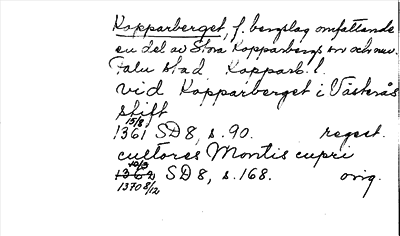 Kopparberget, f. bergslag omfattande
en del av Stora Kopparbergs sn och nuv.
Falu stad Kopparb. l.
vid Kopparberget i Västerås
stift
15/8
1361 SD 8, s. 90. regest.
cultores Montis cupri
10/3
1362 SD 8, s. 168. orig.
1370 8/12